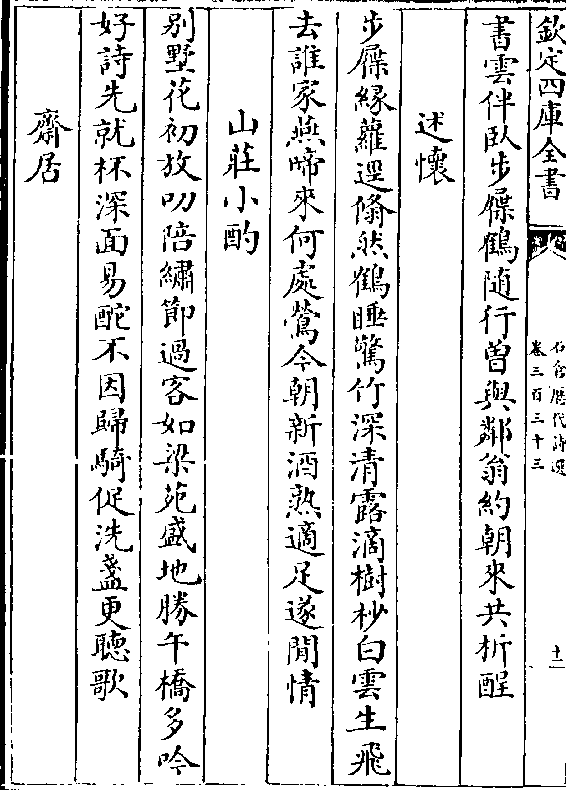 欽定四庫全書
石倉歷代詩選
卷三百三十三
十二
書雲伴臥步屧鶴随行曽與鄰翁約朝來共析酲
述懷
步屧緣蘿逕翛然鶴睡驚竹深清露滴樹杪白雲生飛
去誰家燕啼來何處鶯今朝新酒熟適足遂閒情
山莊小酌
别墅花初放叨陪繡節過客如梁苑盛地勝午橋多吟
好詩先就杯深面易酡不因歸騎促洗盞更聽歌
齋居